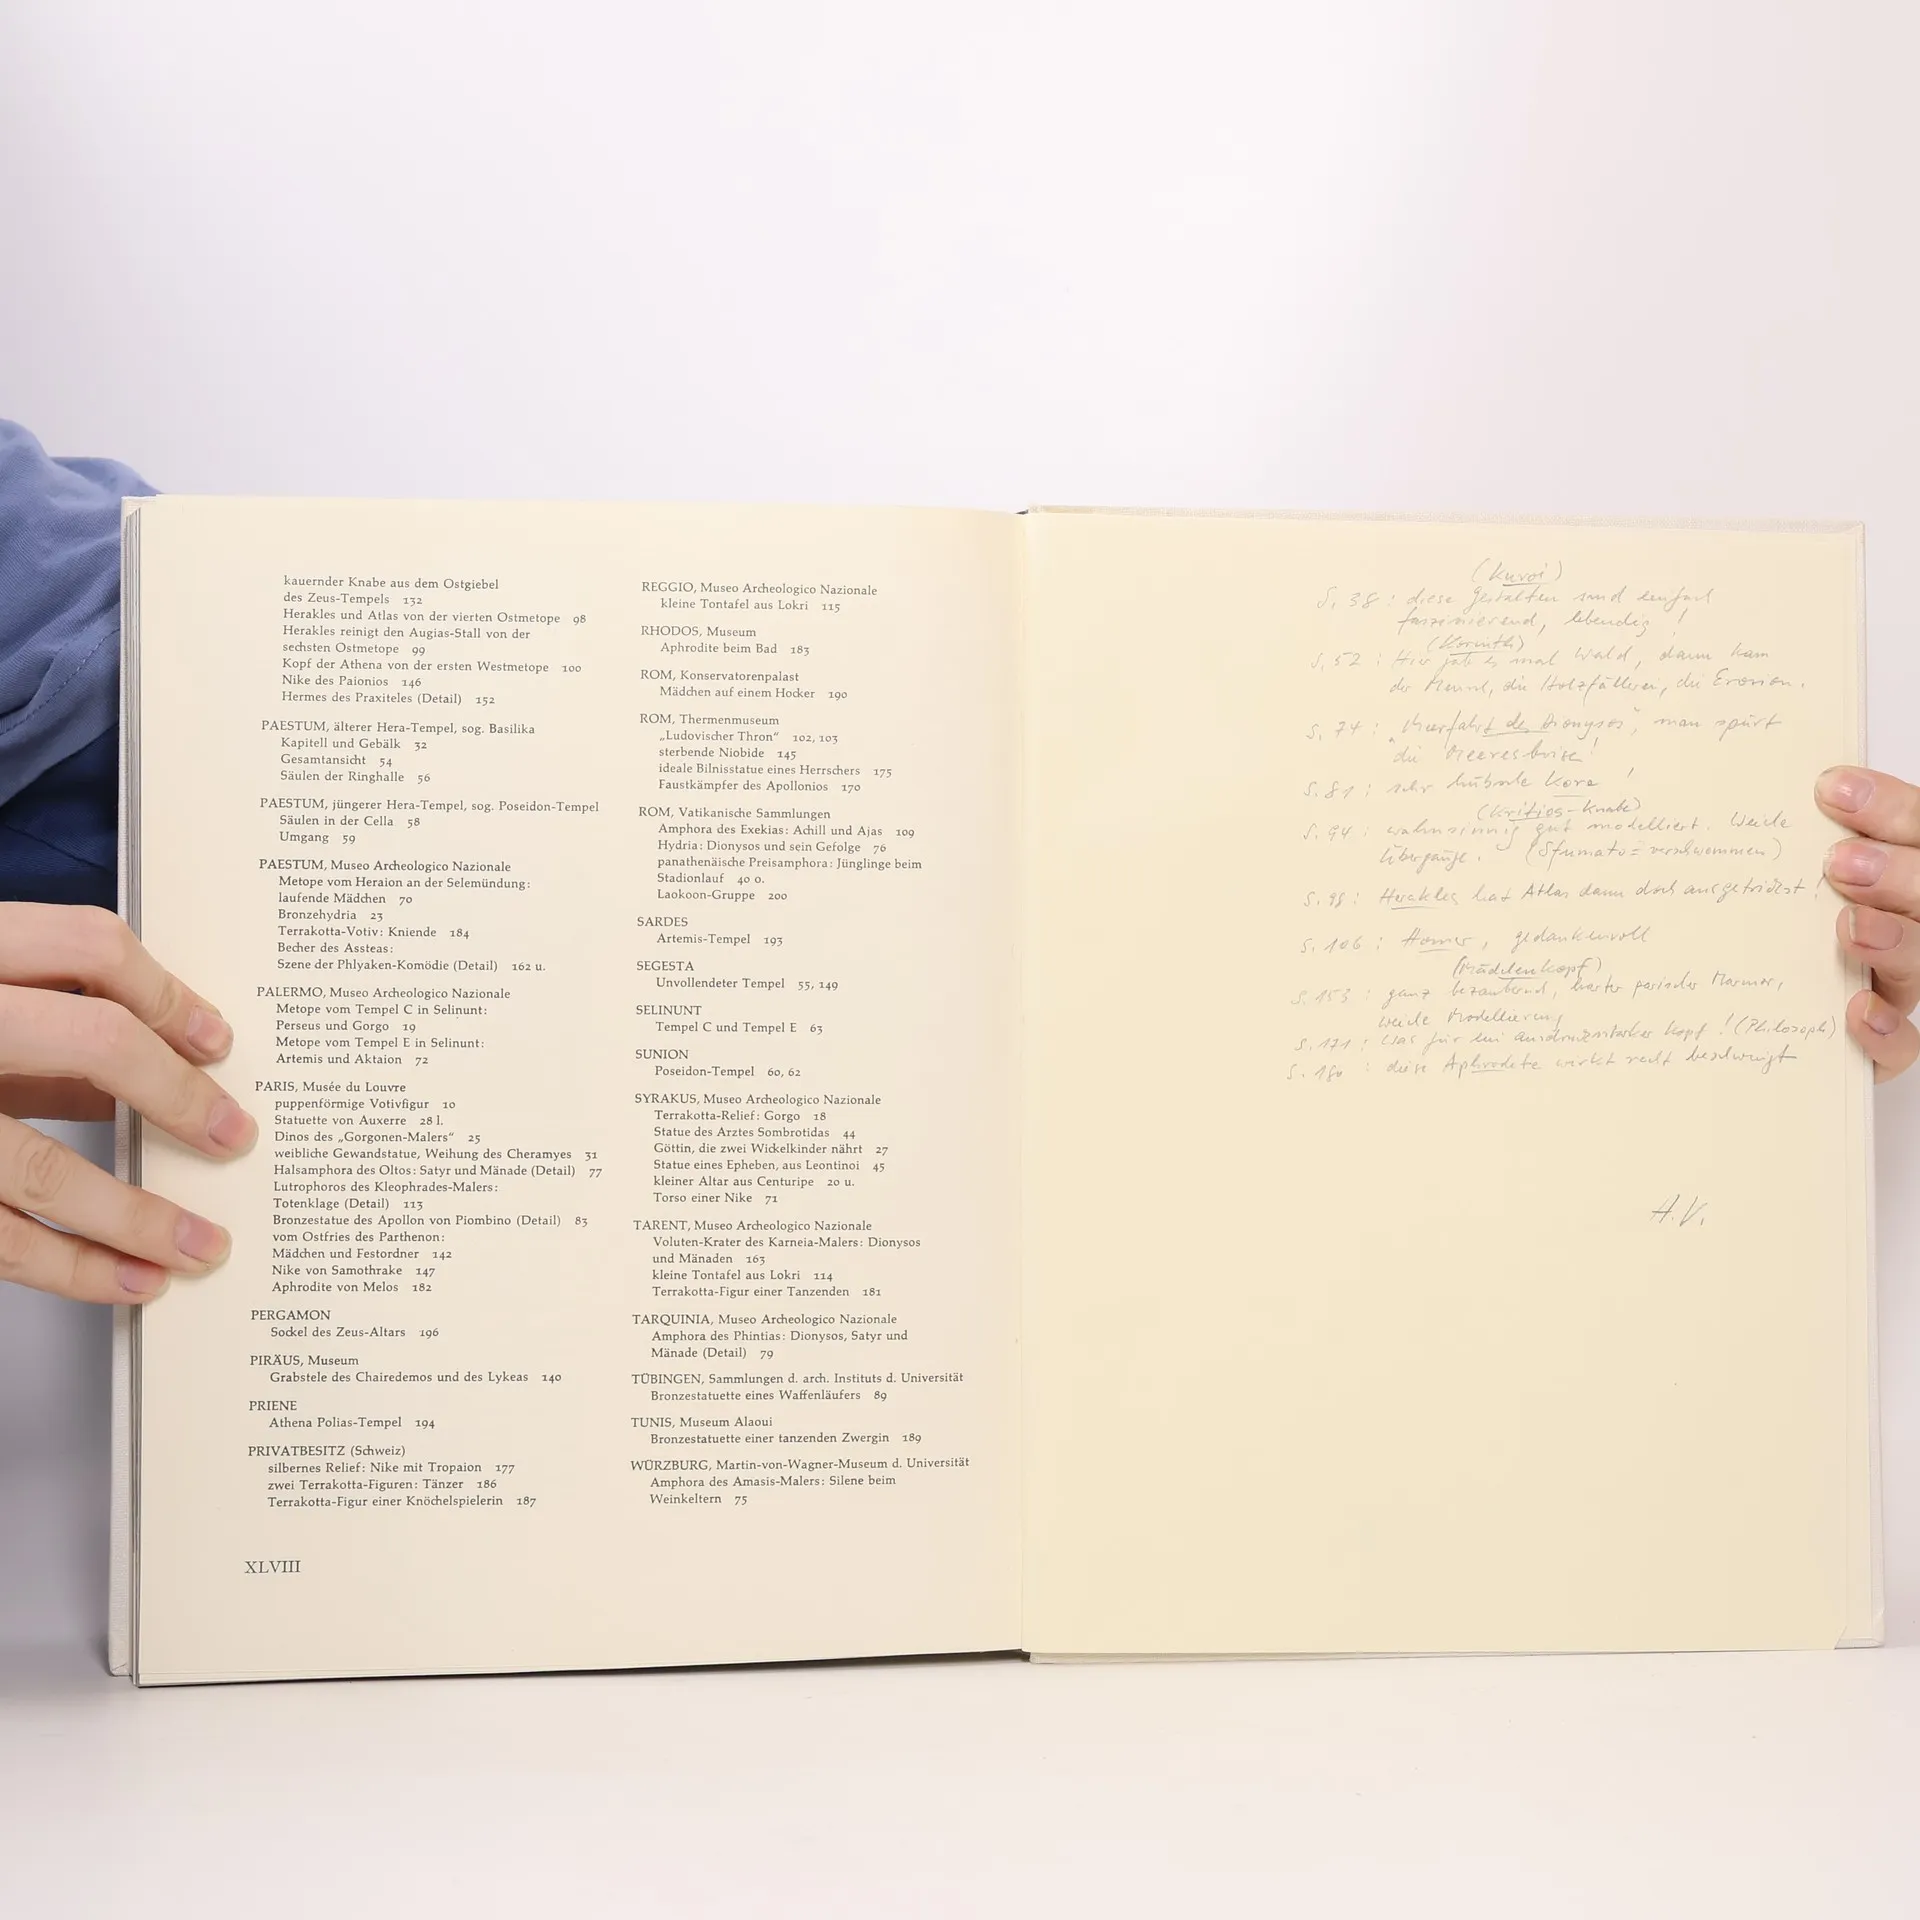 kauernder Knabe aus dem Ostgiebel
des Zeus-Tempels 132
Herakles und Atlas von der vierten Ostmetope 98
Herakles reinigt den Augias-Stall von der
sechsten Ostmetope 99
Kopf der Athena von der ersten Westmetope 100
Nike des Paionios 146
Hermes des Praxiteles (Detail) 152
PAESTUM, älterer Hera-Tempel, sog. Basilika
Kapitell und Gebälk 32
Gesamtansicht 54
Säulen der Ringhalle 56
PAESTUM, jüngerer Hera-Tempel, sog. Poseidon-Tempel
Säulen in der Cella 58
Umgang 59
PAESTUM, Museo Archeologico Nazionale
Metope vom Heraion an der Selemündung:
laufende Mädchen 70
Bronzehydria 23
Terrakotta-Votiv: Kniende 184
Becher des Assteas:
Szene der Phlyaken-Komödie (Detail) 162 u.
PALERMO, Museo Archeologico Nazionale
Metope vom Tempel C in Selinunt:
Perseus und Gorgo 19
Metope vom Tempel E in Selinunt:
Artemis und Aktaion 72
PARIS, Musée du Louvre
puppenförmige Votivfigur 10
Statuette von Auxerre 28 l.
Dinos des „Gorgonen-Malers“ 25
weibliche Gewandstatue, Weihung des Cheramyes 31
Halsamphora des Oltos: Satyr und Mänade (Detail) 77
Lutrophoros des Kleophrades-Malers:
Totenklage (Detail) 113
Bronzestatue des Apollon von Piombino (Detail) 83
vom Ostfries des Parthenon:
Mädchen und Festordner 142
Nike von Samothrake 147
Aphrodite von Melos 182
PERGAMON
Sockel des Zeus-Altars 196
PIRÄUS, Museum
Grabstele des Chairedemos und des Lykeas 140
PRIENE
Athena Polias-Tempel 194
PRIVATBESITZ (Schweiz)
silbernes Relief: Nike mit Tropaion 177
zwei Terrakotta-Figuren: Tänzer 186
Terrakotta-Figur einer Knöchelspielerin 187
XLVIII
REGGIO, Museo Archeologico Nazionale
kleine Tontafel aus Lokri 115
RHODOS, Museum
Aphrodite beim Bad 183
ROM, Konservatorenpalast
Mädchen auf einem Hocker 190
ROM, Thermenmuseum
„Ludovischer Thron“ 102, 103
sterbende Niobide 145
ideale Bilnisstatue eines Herrschers 175
Faustkämpfer des Apollonios 170
ROM, Vatikanische Sammlungen
Amphora des Exekias: Achill und Ajas 109
Hydria: Dionysos und sein Gefolge 76
panathenäische Preisamphora: Jünglinge beim
Stadionlauf 40 o.
Laokoon-Gruppe 200
SARDES
Artemis-Tempel 193
SEGESTA
Unvollendeter Tempel 55, 149
SELINUNT
Tempel C und Tempel E 63
SUNION
Poseidon-Tempel 60, 62
SYRAKUS, Museo Archeologico Nazionale
Terrakotta-Relief: Gorgo 18
Statue des Arztes Sombrotidas 44
Göttin, die zwei Wickelkinder nährt 27
Statue eines Epheben, aus Leontinoi 45
kleiner Altar aus Centuripe 20 u.
Torso einer Nike 71
TARENT, Museo Archeologico Nazionale
Voluten-Krater des Karneia-Malers: Dionysos
und Mänaden 163
kleine Tontafel aus Lokri 114
Terrakotta-Figur einer Tanzenden 181
TARQUINIA, Museo Archeologico Nazionale
Amphora des Phintias: Dionysos, Satyr und
Mänade (Detail) 79
TÜBINGEN, Sammlungen d. arch. Instituts d. Universität
Bronzestatuette eines Waffenläufers 89
TUNIS, Museum Alaoui
Bronzestatuette einer tanzenden Zwergin 189
WÜRZBURG, Martin-von-Wagner-Museum d. Universität
Amphora des Amasis-Malers: Silene beim
Weinkeltern 75
(Kuroi)
S. 38 : diese Gestalten sind einfach
faszinierend, lebendig !
(Korinth)
S. 52 : Hier gab es mal Wald, dann kam
der Mensch, die Holzfällerei, die Erosion.
S. 74 : „Meerfahrt des Dionysos“, man spürt
die Meeresbrise !
S. 81 : sehr hübsche Kore !
(Kritios-Knabe)
S. 94 : wahnsinnig gut modelliert. Weiche
Übergänge. (Sfumato = verschwommen)
S. 98 : Herakles hat Atlas dann doch ausgetrickst !
S. 106 : Homer, gedankenvoll
(Mädchenkopf)
S. 153 : ganz bezaubernd, harter parischer Marmor,
weiche Modellierung
S. 171 : Was für ein ausdrucksstarker Kopf ! (Philosoph)
S. 180 : diese Aphrodite wirkt recht beschwingt
H.V.